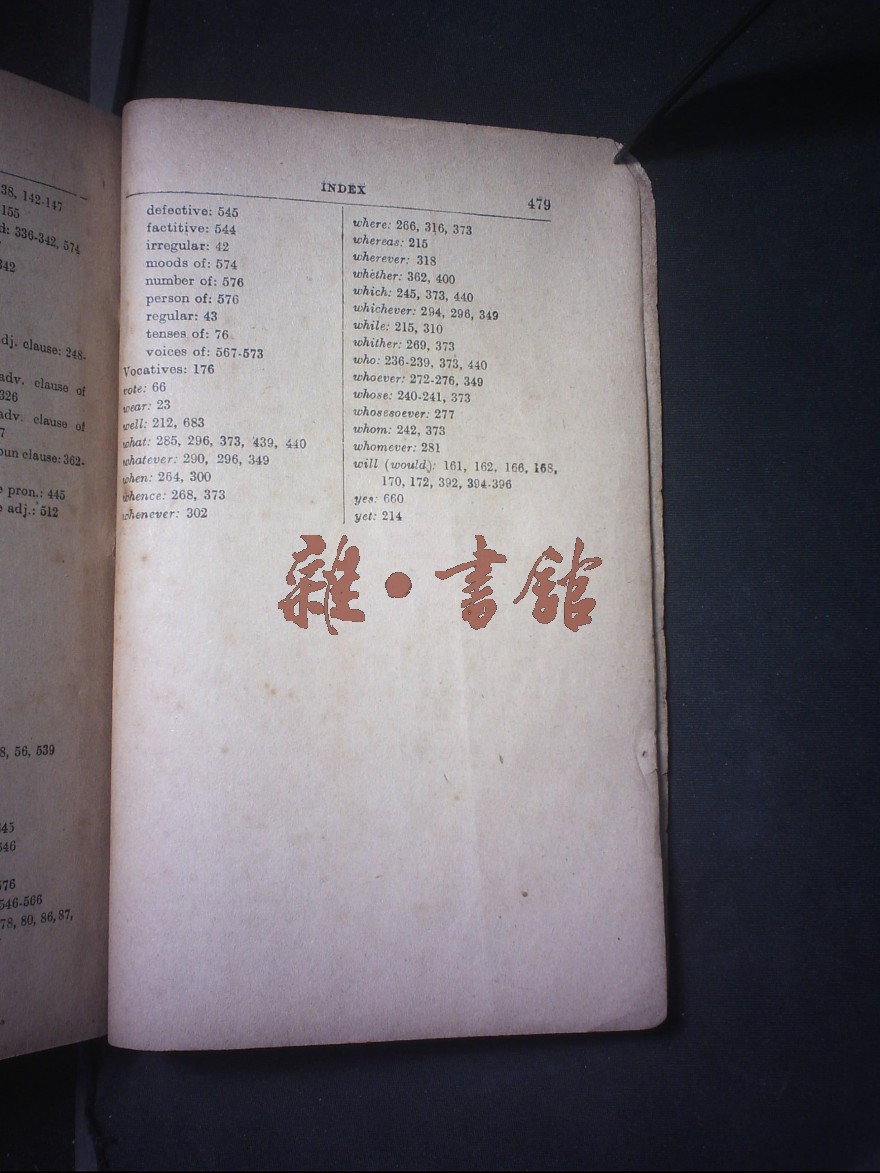 38, 142-147
155
d: 336-342, 574
342
dj. clause: 248.
adv. clause of
326
adv. clause of
7
oun clause: 362.
e pron.: 445
e adj.: 512
8, 56, 539
345
346
576
546-566
78, 80, 86, 87,
INDEX
479
defective: 545
factitive: 544
irregular: 42
moods of: 574
number of: 576
person of: 576
regular: 43
tenses of: 76
voices of: 567-573
Vocatives: 176
vote: 66
wear: 23
well: 212, 683
what: 285, 296, 373, 439, 440
whatever: 290, 296, 349
when: 264, 300
whence: 268, 373
whenever: 302
where: 266, 316, 373
whereas: 215
wherever: 318
whether: 362, 400
which: 245, 373, 440
whichever: 294, 296, 349
while: 215, 310
whither: 269, 373
who: 236-239, 373, 440
whoever: 272-276, 349
whose: 240-241, 373
whosesoever: 277
whom: 242, 373
whomever: 281
will (would): 161, 162, 166, 168,
170, 172, 392, 394-396
yes: 660
yet: 214
雜·書館